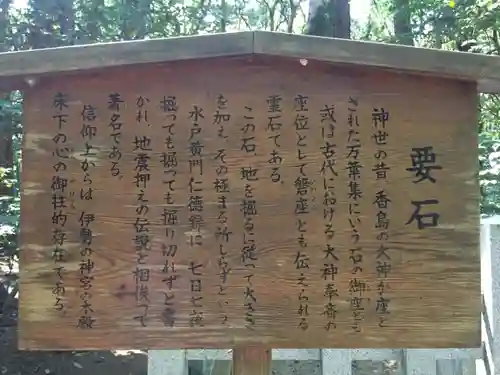 要石
神世の昔 香島の大神が座と
された万葉集にいう石の御座とも
或は古代における大神奉斎の
座位として磐座とも伝えられる
霊石である。
この石、地を掘るに従って大きさ
を加え、その極まる所しらずという
水戸黄門仁徳録に 七日七夜
掘っても掘っても掘り切れずと書
かれ、地震押えの伝説と相俟って
著名である。
信仰上からは 伊勢の神宮の本殿
床下の心の御柱的存在である。